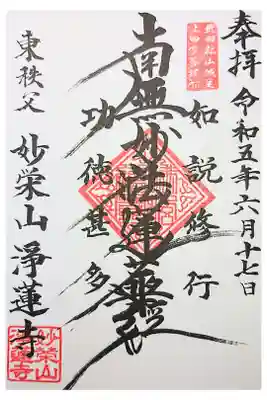 奉拝 令和五年六月十七日
如説修行
南無妙法蓮華経
功徳甚多
東秩父 妙栄山 浄蓮寺
妙栄山
浄蓮寺